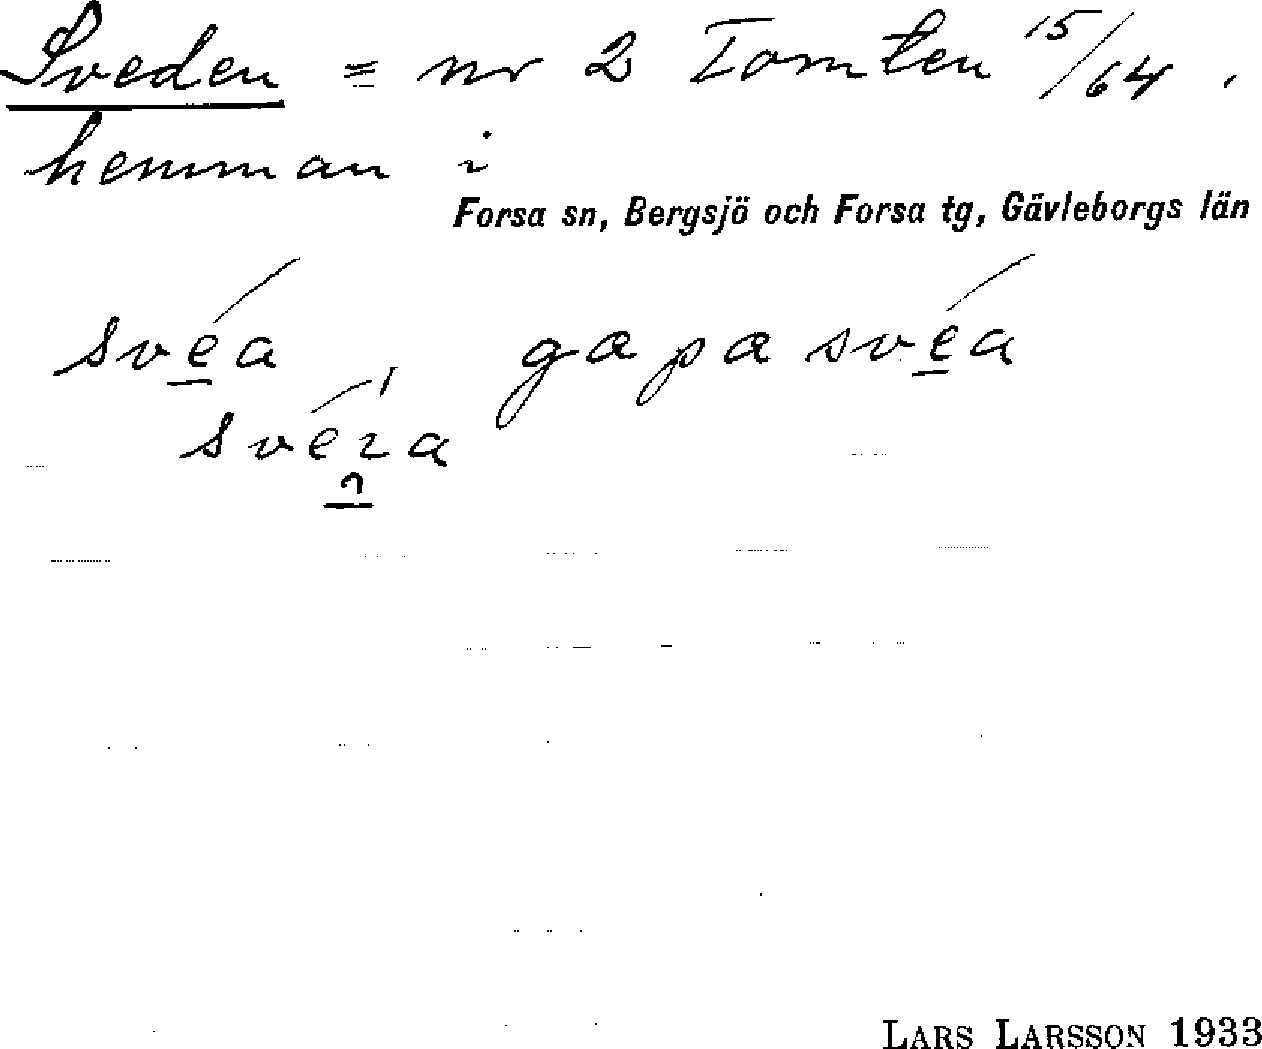 Sveden = nr 2 Tomten 15/64
hemman i
Forsa sn, Bergsjö och Forsa tg, Gävleborgs län
svéa, gapasvéa
svéra
LARS LARSSON 1933